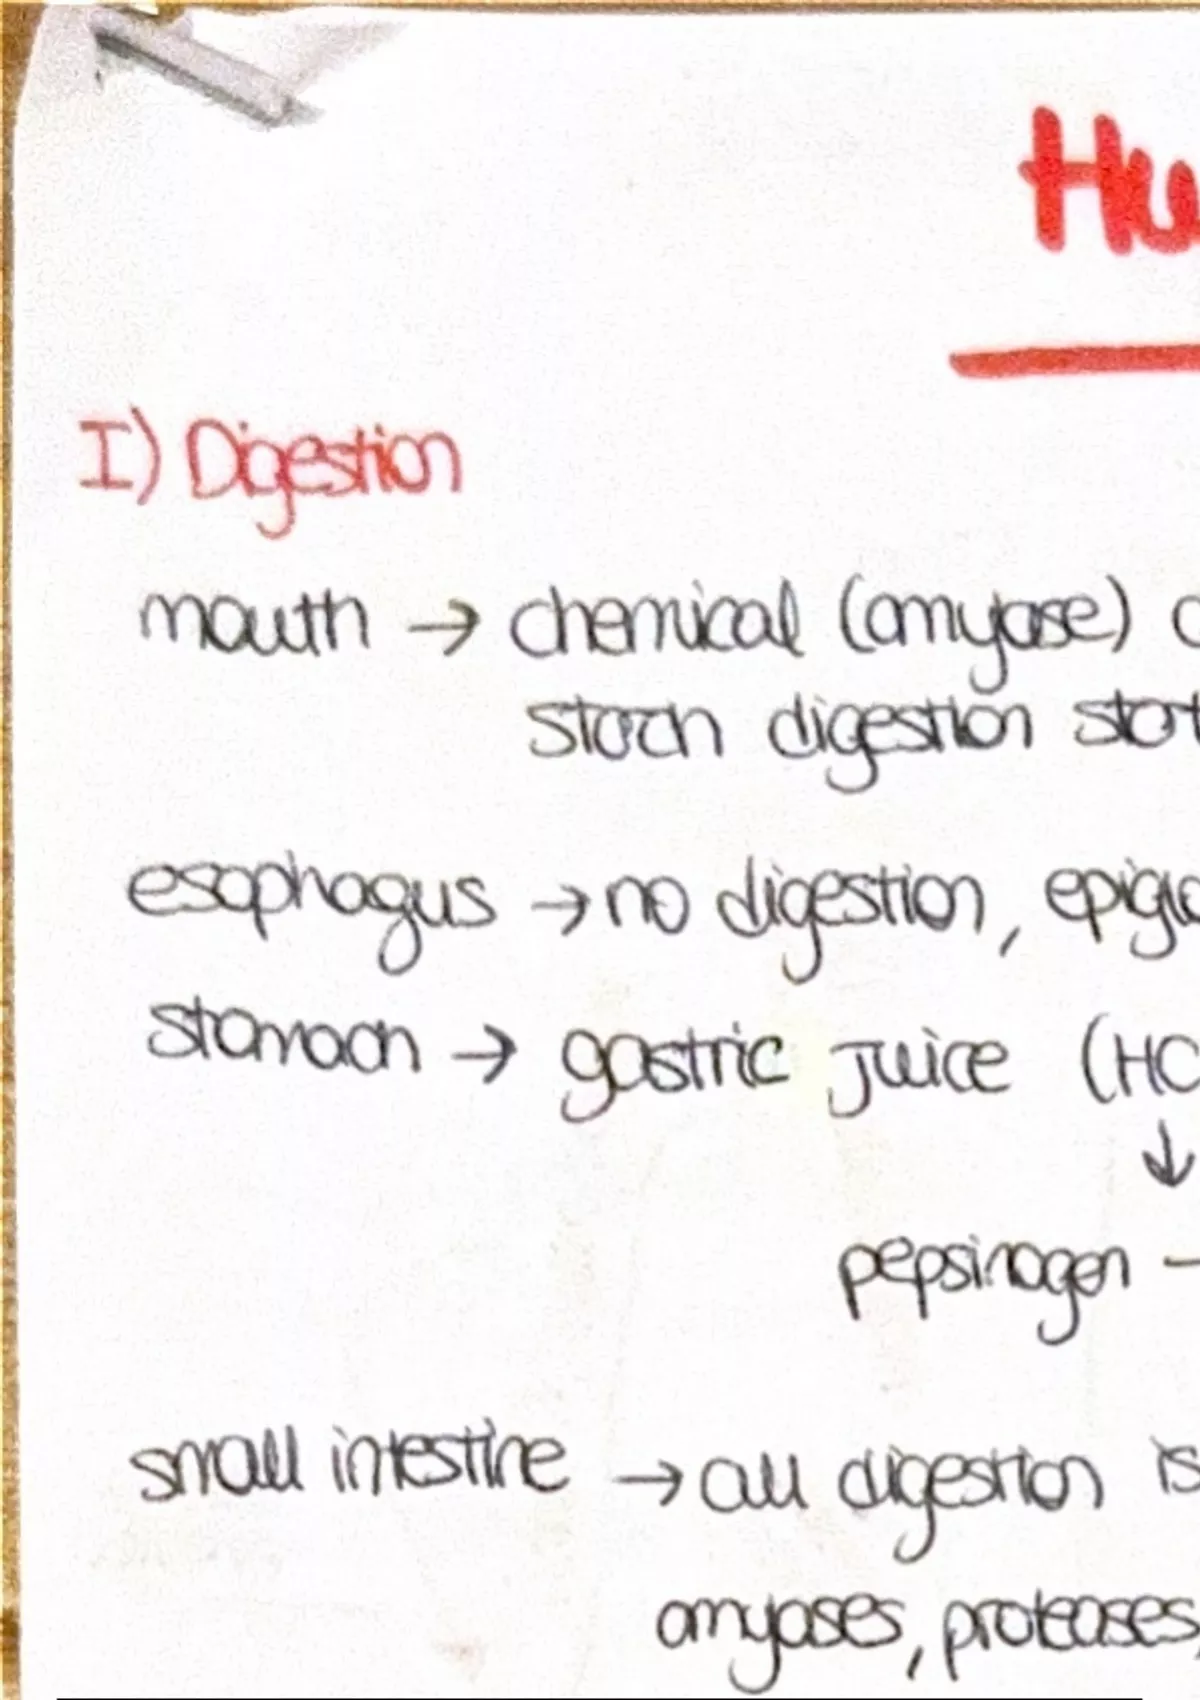 Hu
I) Digestion
mouth → chemical (amylase)
starch digestion start
esophagus → no digestion, epigl
stomach → gastric juice (HC
↓
pepsinogen -
small intestine → all digestion is
amylases, proteases,